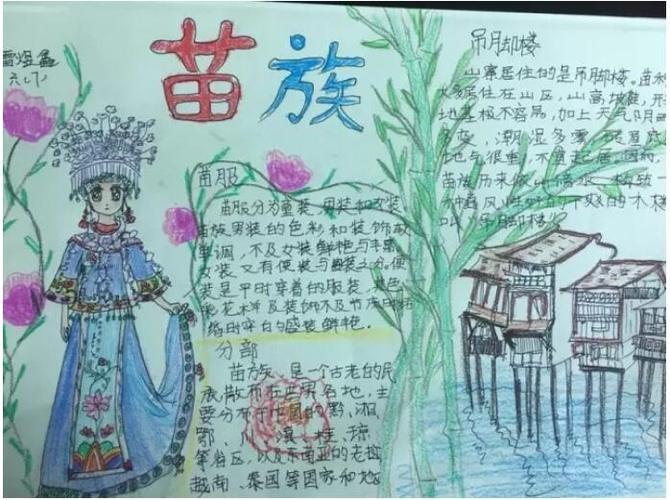 苗族
六(7)
苗服
苗服分为童装,男装和女装。
苗族男装的色彩和装饰较
单调,不及女装鲜艳与丰富。
女装又有便装与盛装之分。便
装是平时穿着的服装,其色
彩花样及装饰不及节庆时结
婚时穿的盛装鲜艳。
分部
苗族,是一个古老的民
族,散布在世界各地,主
要分布于中国的黔、湘、
鄂、川、滇、桂、琼
等省区,以及东南亚的老挝、
越南、泰国等国家和地
吊脚楼
山寨居住的是吊脚楼。苗
大多居住在山区,山高坡陡,开
地基极不容易,加上天气阴雨
多变,潮湿多雾,
地气很重,不宜起居,因而,
苗族历来依山傍水,构筑一
种通风性好的干爽的木楼
叫"吊脚楼"